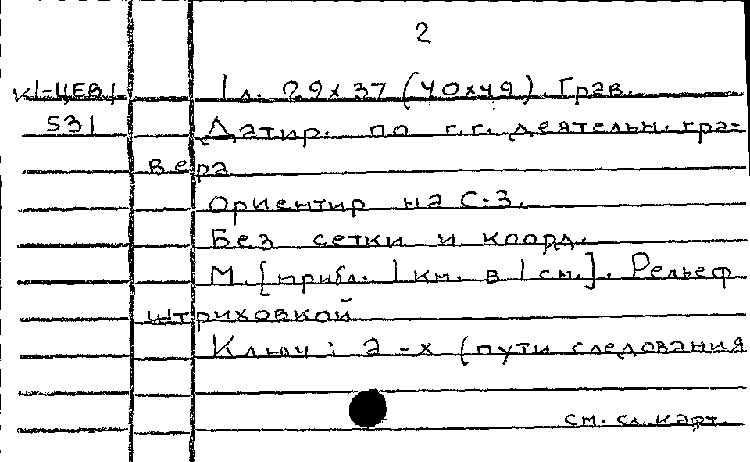 2
К1-ЦЕВ1 1 л. 29х37 (40х49). Грав.
531 Датир. по г.г. деятельн. гра-
вера
Ориентир на С-З.
Без сетки и коорд.
М. [прибл. 1 км. в 1 см.]. Рельеф
штриховкой
Ключ: а-х (пути следования
см. сл. карт.